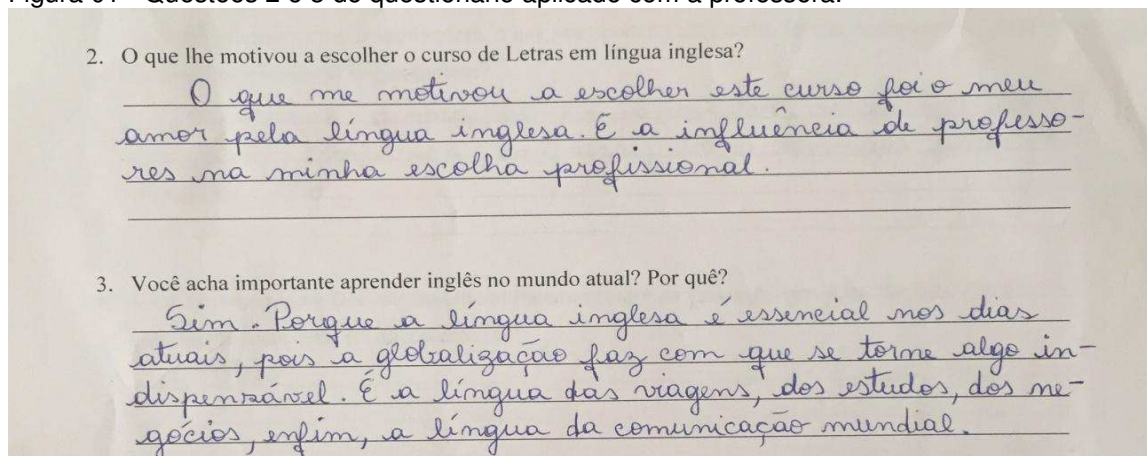 2. O que lhe motivou a escolher o curso de Letras em língua inglesa?
O que me motivou a escolher este curso foi o meu
amor pela língua inglesa. É a influência de professo-
res na minha escolha profissional.
3. Você acha importante aprender inglês no mundo atual? Por quê?
Sim. Porque a língua inglesa é essencial nos dias
atuais, pois a globalização faz com que se torne algo in-
dispensável. É a língua das viagens, dos estudos, dos ne-
gócios, enfim, a língua da comunicação mundial.